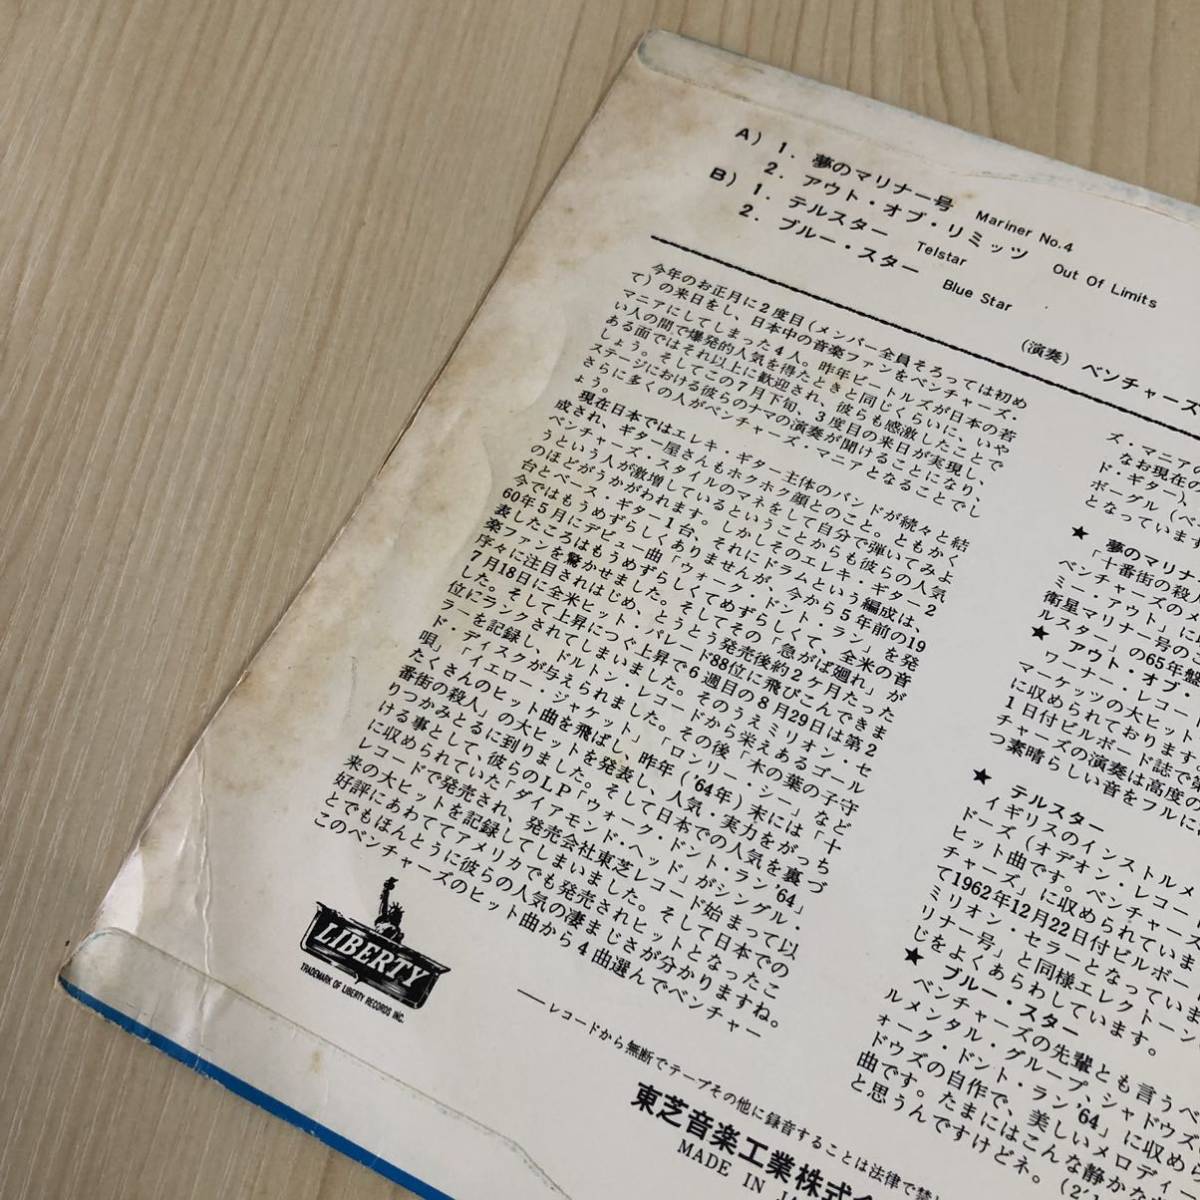 A) 1. 夢のマリナー号 Mariner No.4
2. アウト・オブ・リミッツ Out Of Limits
B) 1. テルスター Telstar
2. ブルー・スター Blue Star
(演奏) ベンチャーズ
今年のお正月に2度目(メンバー全員そろっては初め
て)の来日をし、日本中の音楽ファンをベンチャーズ・
マニアにしてしまった4人。昨年ビートルズが日本の若
い人の間で爆発的人気を得たときと同じくらいに、いや
ある面ではそれ以上に歓迎され、彼らも感激したことで
しょう。そしてこの7月下旬、3度目の来日が実現し、
ステージにおける彼らのナマの演奏が聞けることになり、
さらに多くの人がベンチャーズ・マニアとなることでし
ょう。
現在日本ではエレキ・ギター主体のバンドが続々と結
成され、ギター屋さんもホクホク顔とのこと。ともかく
ベンチャーズ・スタイルのマネをして自分で弾いてみよ
うという人が激増しているということからも彼らの人気
のほどがうかがわれます。しかしそのエレキ・ギター2
台とベース・ギター1台、それにドラムという編成は、
今ではもうめずらしくありませんが、今から5年前の19
60年5月にデビュー曲「ウォーク・ドント・ラン」を発
表したころはもうめずらしくてめずらしくて、全米の音
楽ファンを驚かせました。そしてその「急がば廻れ」が
序々に注目されはじめ、とうとう発売後約2ケ月たった
7月18日に全米ヒット・パレード88位に飛びこんできま
した。そして上昇につぐ上昇で6週目の8月29日は第2
位にランクされてしまいました。そのうえミリオン・セ
ラーを記録し、ドルトン・レコードから栄えあるゴール
ド・ディスクが与えられました。その後「木の葉の子守
唄」「イエロー・ジャケット」「ロンリー・シー」など
たくさんのヒット曲を飛ばし、昨年('64年)末には「十
番街の殺人」の大ヒットを発表し、人気・実力をがっち
りつかみとるに到りました。そして日本での人気を裏づ
ける事として、彼らのLP「ウォーク・ドント・ラン'64」
に収められていた「ダイアモンド・ヘッド」がシングル・
レコードで発売され、発売会社東芝レコード始まって以
来の大ヒットを記録してしまいました。そして日本での
好評にあわててアメリカでも発売されヒットとなったこ
とでもほんとうに彼らの人気の凄まじさが分かりますね。
このベンチャーズのヒット曲から4曲選んでベンチャー
ズ・マニアの
なお現在の
ド・ギター)、
ボーグル(ベ
となっています
★ 夢のマリナー
「十番街の殺人
ベンチャーズのメ
ミー・アウト」に
衛星マリナー号のこ
ルスター」の65年盤
★ アウト・オブ・
ワーナー・レコード
マーケッツの大ヒット
に収められております。
1日付ビルボード誌で第
チャーズの演奏は高度の
つ素晴らしい音をフルに
★ テルスター
イギリスのインストルメ
ドーズ(オデオン・レコー
ヒット曲です。ベンチャーズ
チャーズ」に収められていま
て1962年12月22日付ビルボー
ミリオン・セラーとなっていま
リナー号」と同様エレクトーン
じをよくあらわしています。
★ ブルー・スター
ベンチャーズの先輩とも言うべ
ルメンタル・グループ、シャドウズ
ドウズの自作で、美しいメロディー
ォーク・ドント・ラン'64」に収め
曲です。たまにはこんな静かな
と思うんですけどネ。
LIBERTY
TRADEMARK OF LIBERTY RECORDS INC.
―レコードから無断でテープその他に録音することは法律で禁
東芝音楽工業株式会
MADE IN J